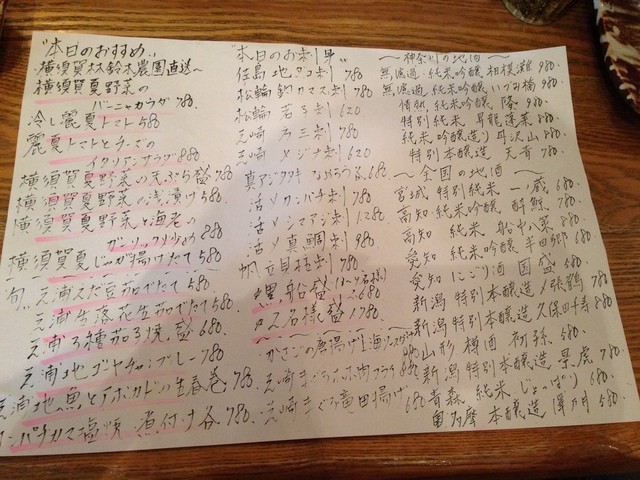 "本日のおすすめ"
横須賀林鈴木農園直送〜
横須賀夏野菜の
バーニャカウダ 780.
冷し麗夏トマト 580
麗夏トマトと
イタリアンサラダ 880.
横須賀夏野菜の天ぷら盛 780
横須賀夏野菜の浅漬け 580
横須賀夏野菜と海老の
ガーリック炒め 880
横須賀夏じゃが揚げたて 580
旬 えだ豆茹でたて 580.
落花生茹でたて 580.
3種茹で焼盛 680.
地ゴーヤチャンプルー 780
地魚とアボカドの生春巻 780
カマ塩焼 煮付け各 780.
"本日のお刺身"
佐島地ダコ刺 780
松輪釣カマス刺 780
松輪 刺 620
三崎 刺 780
三崎 メジナ刺 620
真アジタタキ なめろう 各 680
活〆カンパチ刺 780
活〆シマアジ刺 1280.
活〆真鯛刺 980
帆立貝柱刺 780
船盛 2680
名様盛 1780
かさごの唐揚げ
三崎まぐろホホ肉フライ
三崎まぐろ竜田揚げ 680
〜神奈川の地酒〜
無濾過・純米吟醸 相模灘 980.
無濾過・純米吟醸 いづみ橋 980
純米吟醸 隆 980.
特別 純米 昇龍蓬莱 880.
純米吟醸 丹沢山 880.
特別本醸造 天青 780.
〜全国の地酒〜
宮城 特別純米 一ノ蔵 680.
高知 純米吟醸 酔鯨 780.
高知 純米 船中八策 880.
愛知 純米吟醸 半田郷 680
愛知 にごり酒 国盛 580.
新潟 特別本醸造 〆張鶴 780
新潟 特別本醸造 久保田千寿 880
山形 樽酒 初孫 580.
新潟 特別本醸造 景虎 780
青森 純米 じょっぱり 680.
奥多摩 本醸造 澤乃井 580.